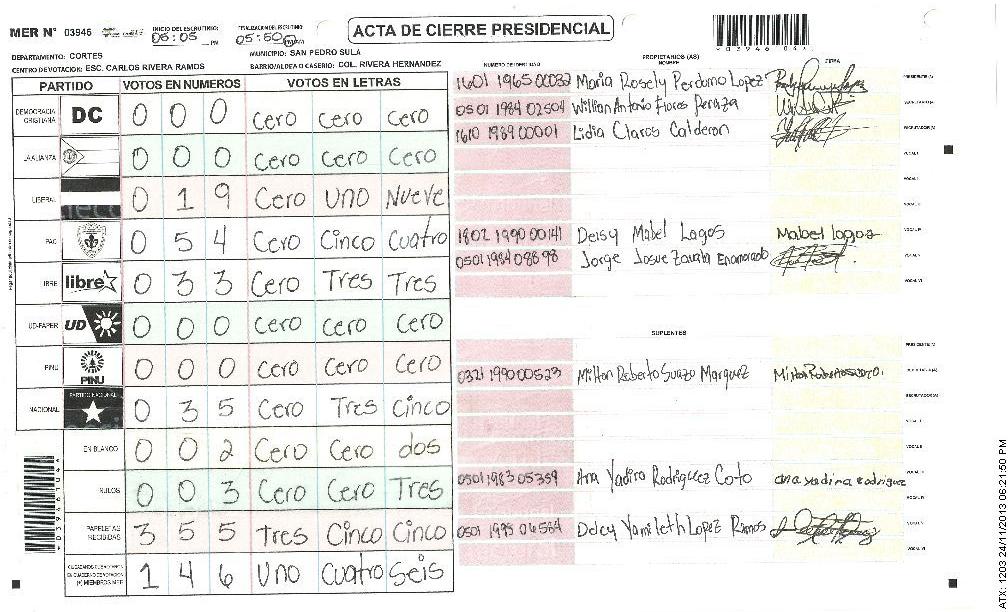 MER N° 03946
INICIO DEL ESCRUTINIO: 06:05 PM
FINALIZACION DEL ESCRUTINIO: 05:50 PM
ACTA DE CIERRE PRESIDENCIAL
DEPARTAMENTO: CORTES
MUNICIPIO: SAN PEDRO SULA
CENTRO DE VOTACION: ESC. CARLOS RIVERA RAMOS
BARRIO/ALDEA O CASERIO: COL. RIVERA HERNANDEZ
PARTIDO VOTOS EN NUMEROS VOTOS EN LETRAS
DEMOCRACIA CRISTIANA DC 0 0 0 Cero Cero Cero
LA ALIANZA 0 0 0 Cero Cero Cero
LIBERAL 0 1 9 Cero Uno Nueve
PAC 0 5 4 Cero Cinco Cuatro
LIBRE libre 0 3 3 Cero Tres Tres
UD-FAPER UD 0 0 0 Cero Cero Cero
PINU PINU 0 0 0 Cero Cero Cero
NACIONAL PARTIDO NACIONAL 0 3 5 Cero Tres Cinco
EN BLANCO 0 0 2 Cero Cero dos
NULOS 0 0 3 Cero Cero Tres
PAPELETAS RECIBIDAS 3 5 5 Tres Cinco Cinco
1 4 6 Uno Cuatro Seis
NUMERO DE IDENTIDAD PROPIETARIOS (AS) NOMBRE FIRMA
1601 1965 00032 Maria Rosely Perdomo Lopez PRESIDENTE (A)
0501 1984 02504 Willian Antonio Flores Peraza SECRETARIO (A)
1610 1989 00001 Lidia Claros Calderon ESCRUTADOR (A)
VOCAL I
VOCAL II
VOCAL III
1802 1990 00141 Deisy Mabel Lagos Mabel lagos VOCAL IV
0501 1984 08898 Jorge Josue Zavala Enamorado VOCAL V
VOCAL VI
SUPLENTES
PRESIDENTE (A)
0321 1990 00523 Milton Roberto Suazo Marquez SECRETARIO (A)
ESCRUTADOR (A)
VOCAL I
VOCAL II
0501 1983 05359 Ana Yadira Rodriguez Coto ana yadira rodriguez VOCAL III
VOCAL IV
0501 1995 04564 Delcy Yamileth Lopez Ramos VOCAL V
VOCAL VI
ATX: 1203 24/11/2013 06:21:50 PM